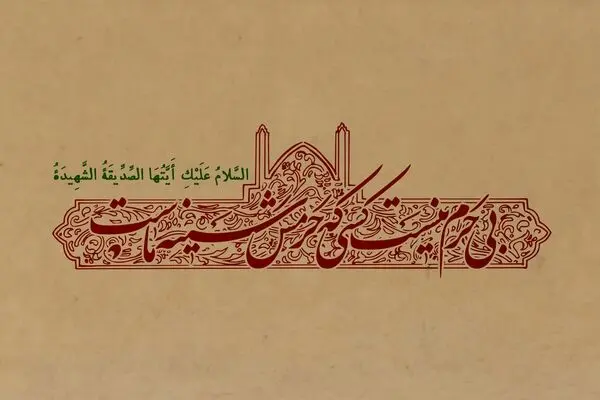 السَّلامُ عَلَيْكِ أَيَّتُهَا الصِّدِّيقَةُ الشَّهِيدَةُ
بی حرم نیست کسی که حرمش سینه ماست